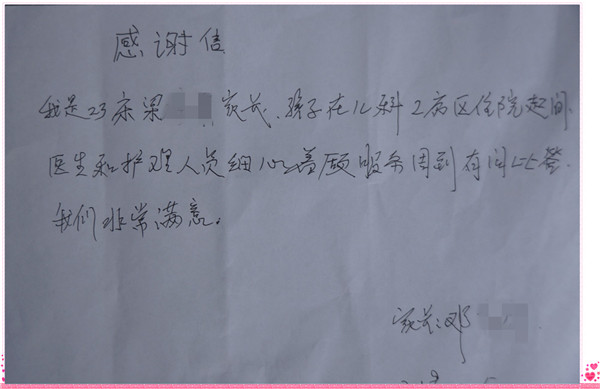 感谢信
我是23床梁 家长.孩子在儿科2病区住院起间.
医生和护理人员细心善顾服务周到有问必答.
我们非常满意。
家长:邓